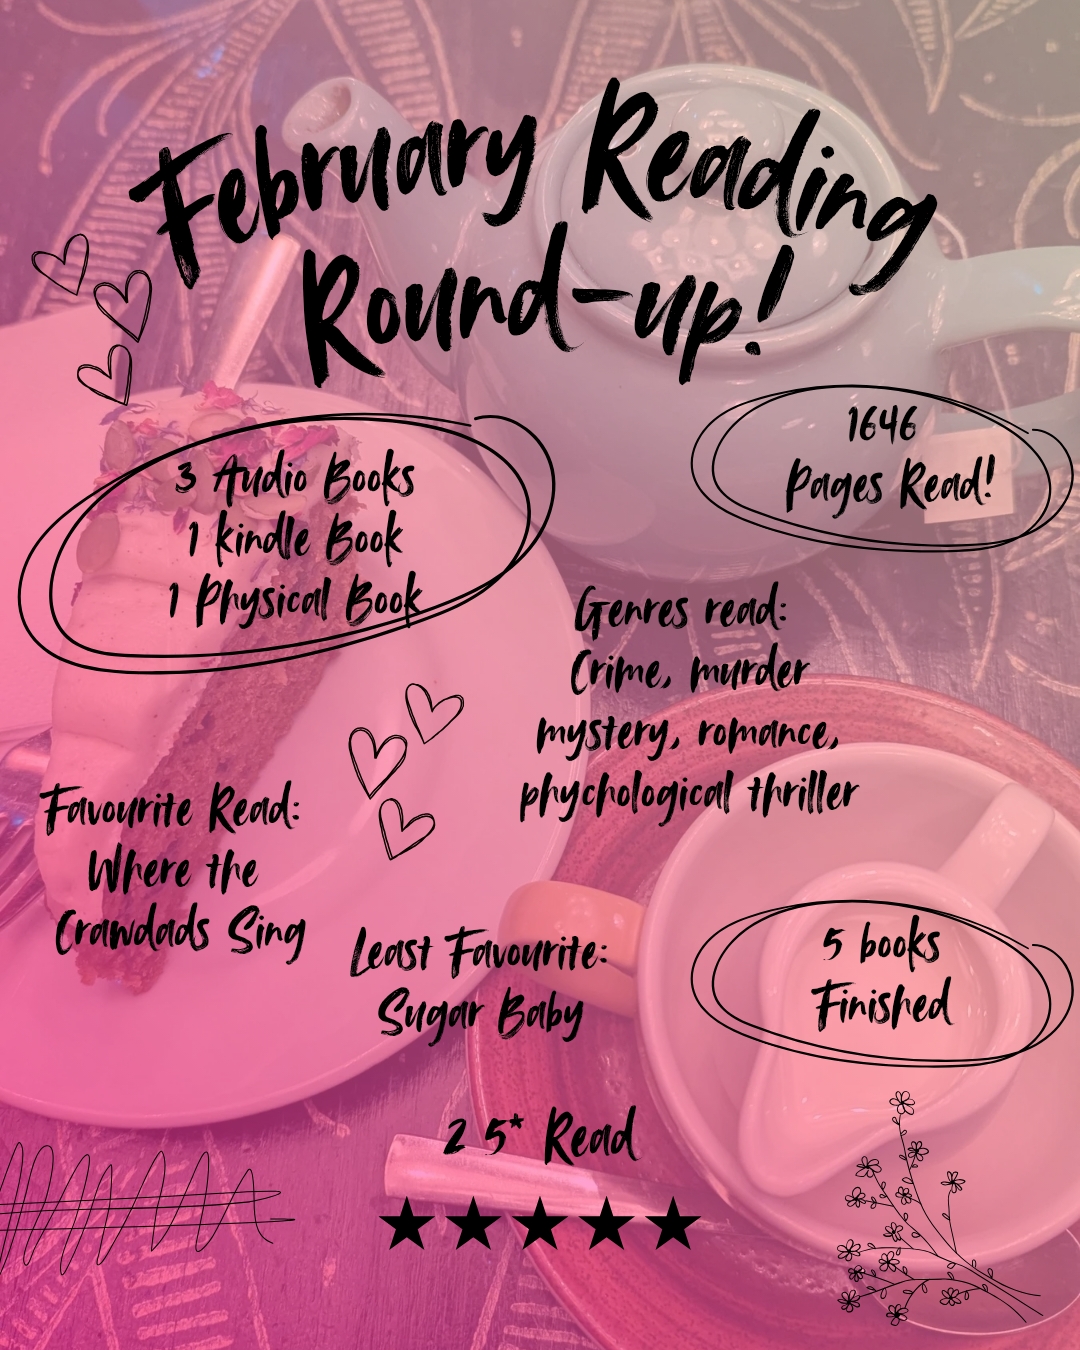 February Reading
Round-up!
3 Audio Books
1 kindle Book
1 Physical Book
1646
Pages Read!
Genres read:
Crime, murder
mystery, romance,
phychological thriller
Favourite Read:
Where the
Crawdads Sing
Least Favourite:
Sugar Baby
5 books
Finished
2 5* Read